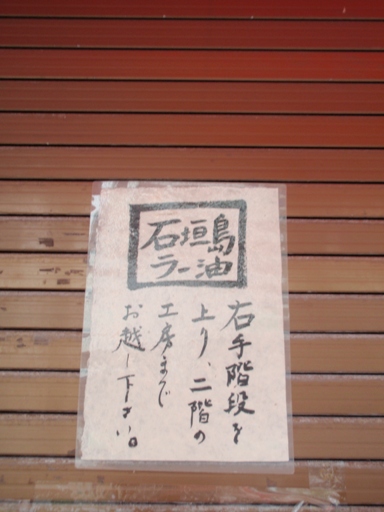 石垣島
ラー油
右手階段を
上り、二階の
工房まで
お越し下さい。